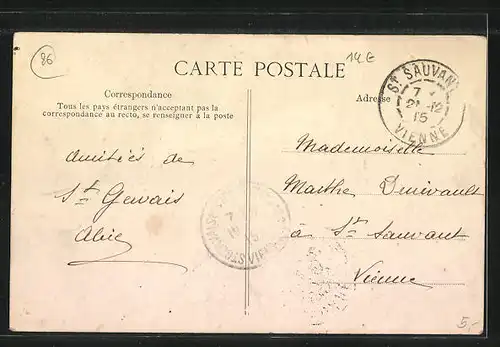 86
14 E
CARTE POSTALE
Correspondance
Tous les pays étrangers n'acceptant pas la
correspondance au recto, se renseigner à la poste
Adresse
ST SAUVANT
7
21 -12
15
VIENNE
Amitiés de
St Gervais
Mademoiselle
Marthe
à St Sauvant
Vienne
5,-